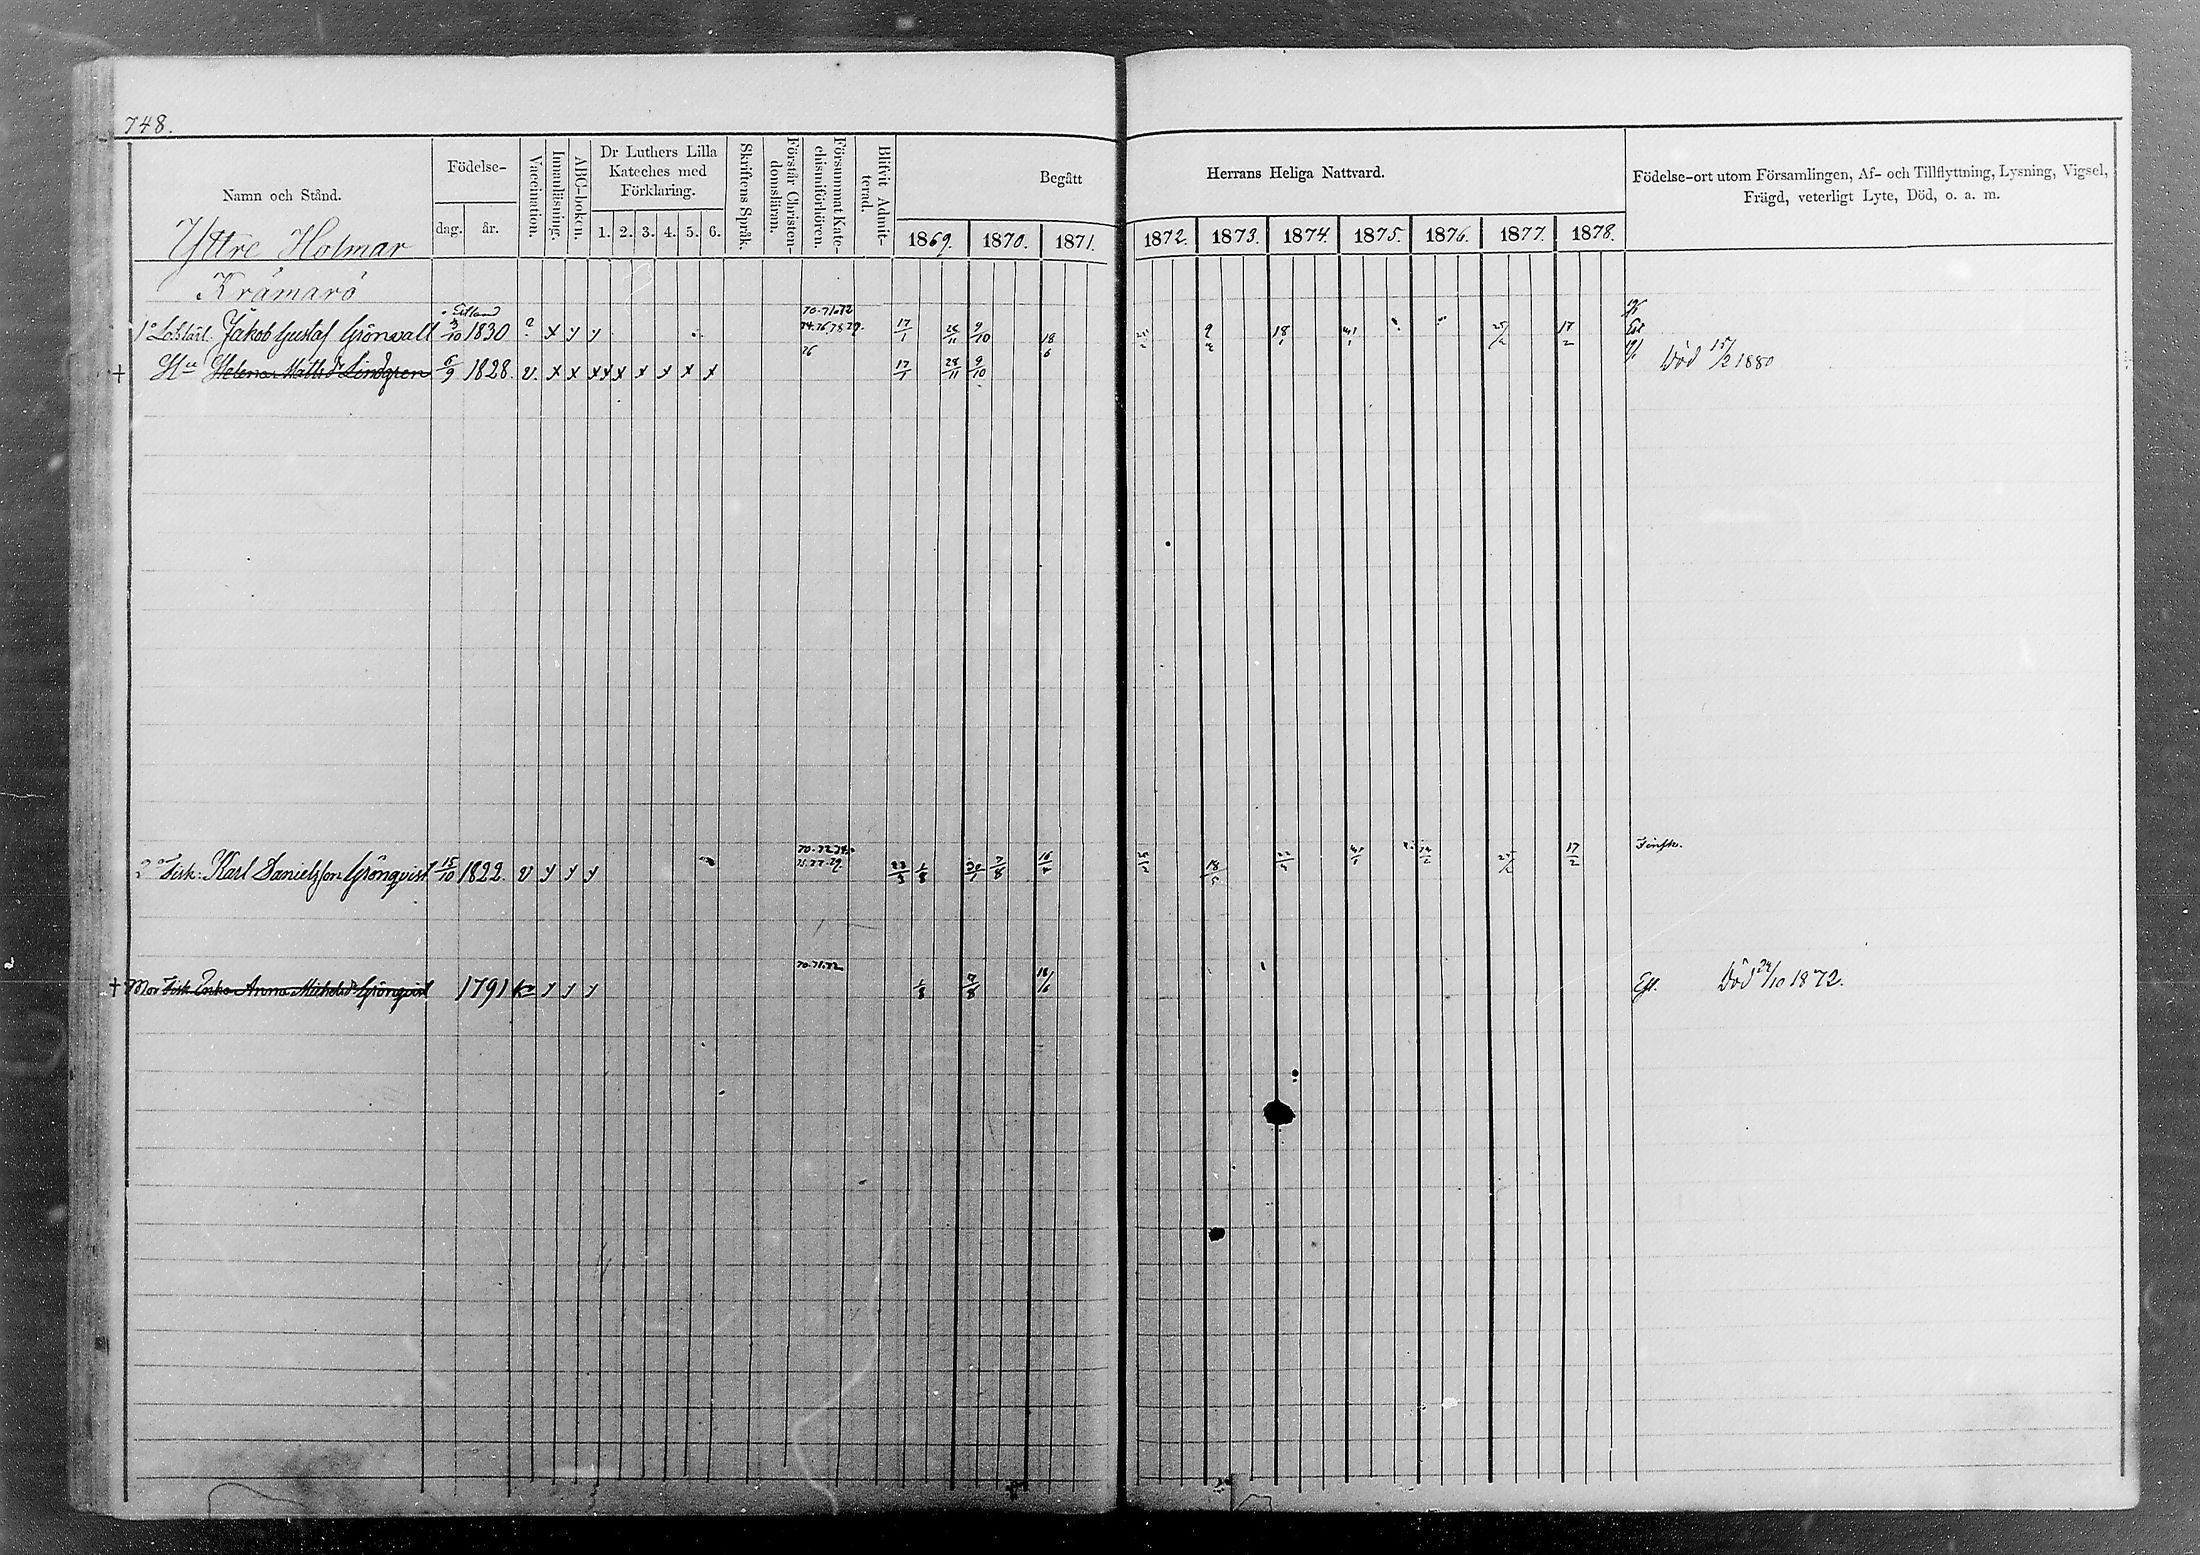 748.
Namn och Stånd.
Födelse-
dag. år.
Vaccination.
Innanläsning.
ABC-boken.
Dr Luthers Lilla
Kateches med
Förklaring.
1. 2. 3. 4. 5. 6.
Skriftens Språk.
Förstår Christen-
domsläran.
Försummat Kate-
chismiförhören.
Blifvit Admit-
terad.
Begått
1869. 1870. 1871.
Herrans Heliga Nattvard.
1872. 1873. 1874. 1875. 1876. 1877. 1878.
Födelse-ort utom Församlingen, Af- och Tillflyttning, Lysning, Vigsel,
Frägd, veterligt Lyte, Död, o. a. m.
Yttre Holmar
Krämarö
Estland
70.71.72
1o Jakob Gustaf Grönvall 3/10 1830 ? x y y 17/1 26/11 9/10 18/6 9/2 18/1 25/2 17/2
76
† Hu Helena Matts dr Lindgren 6/9 1828. v. x x x x x x x x x 17/1 28/11 9/10 Död 15/2 1880
2o Fisk: Karl Danielsson Grönqvist 15/10 1822. v y y y 1/8 7/8 18/5 17/2 Finsk.
70.71.72
† Mor Fisk Enka Anna Michelsdr Grönqvist 1791 y y y 1/8 7/8 18/6 Död 24/10 1872.